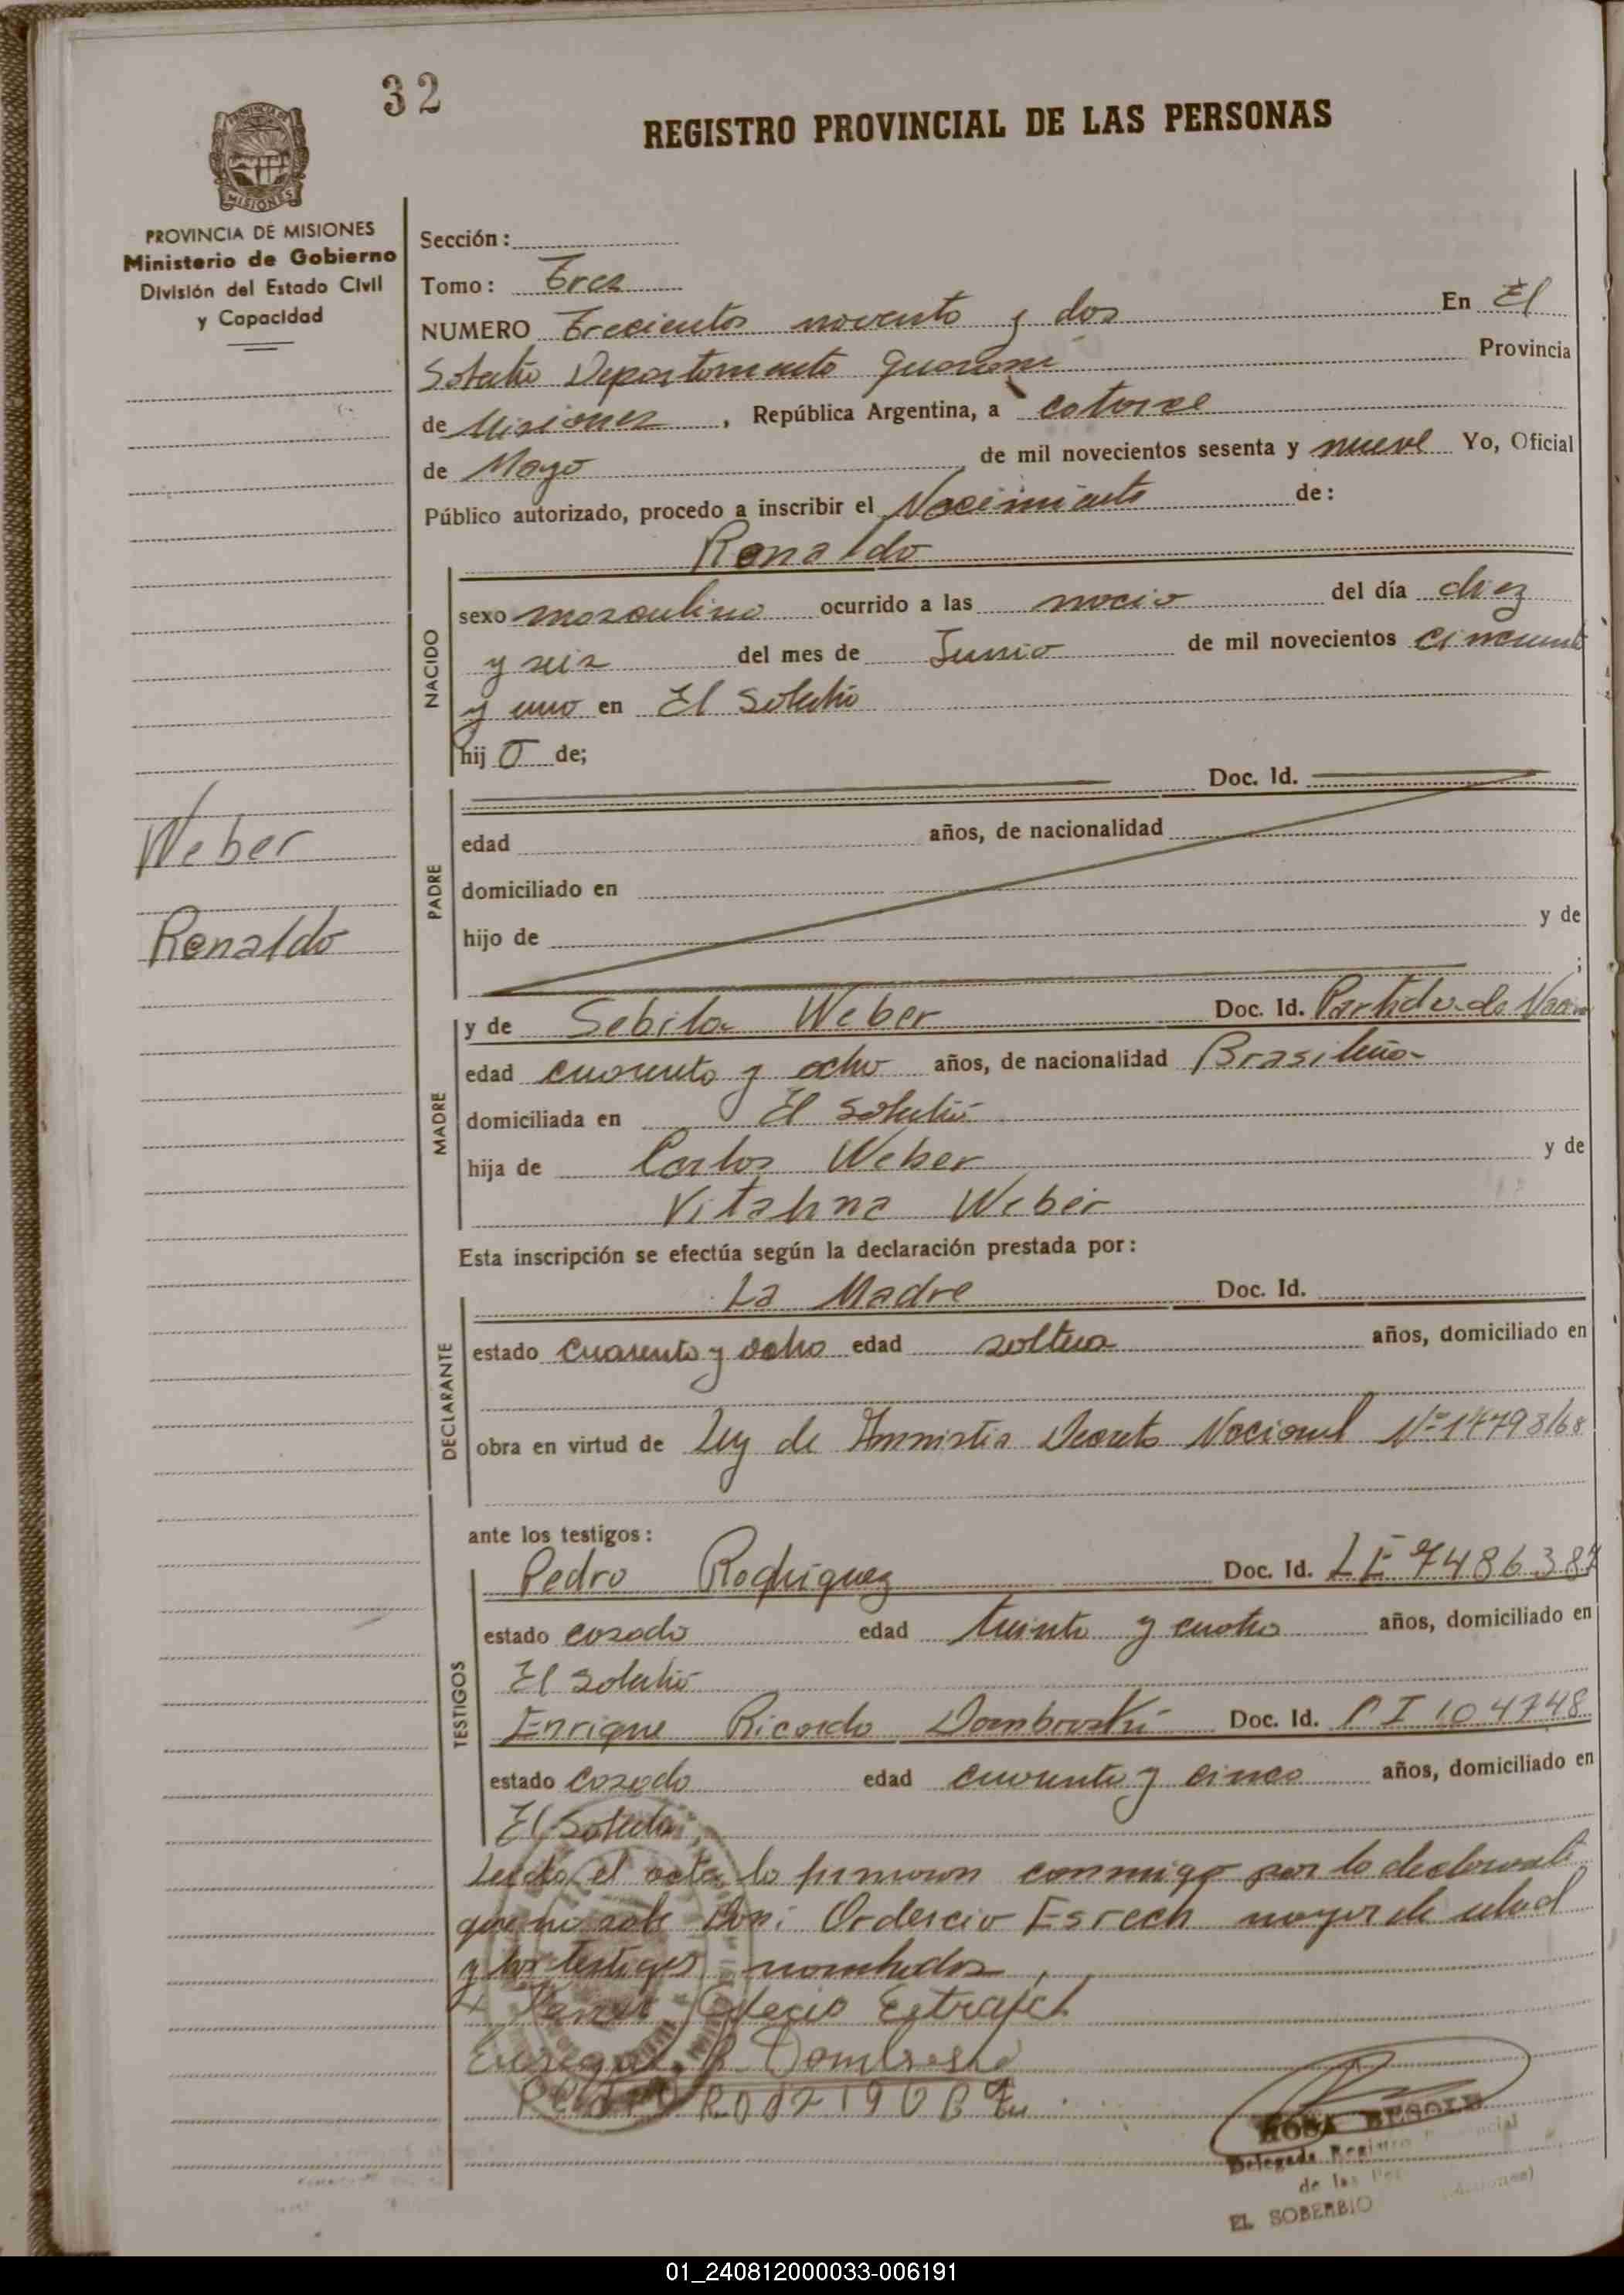 32
REGISTRO PROVINCIAL DE LAS PERSONAS
PROVINCIA DE MISIONES
MISIONES
PROVINCIA DE MISIONES
Ministerio de Gobierno
División del Estado Civil
y Capacidad
Weber
Renaldo
Sección:
Tomo: Tres
NUMERO Trecientos noventa y dos En El
Soberbio Departamento Guarani Provincia
de Misiones, República Argentina, a catorce
de Mayo de mil novecientos sesenta y nueve Yo, Oficial
Público autorizado, procedo a inscribir el Nacimiento de:
Renaldo
NACIDO
sexo masculino ocurrido a las nocio del día diez
y seis del mes de Junio de mil novecientos cincuenta
y uno en El Soberbio
hijo de;
PADRE
Doc. Id.
edad años, de nacionalidad
domiciliado en
hijo de y de
;
MADRE
y de Sebila Weber Doc. Id. Partida de Nacim
edad cuarenta y ocho años, de nacionalidad Brasileña
domiciliada en El Soberbio
hija de Carlos Weber y de
Vitalina Weber
Esta inscripción se efectúa según la declaración prestada por:
DECLARANTE
La Madre Doc. Id.
estado cuarenta y ocho edad soltera años, domiciliado en
obra en virtud de Ley de Amnistia Decreto Nacional Nº 14798/68
ante los testigos:
TESTIGOS
Pedro Rodriguez Doc. Id. LE 7486387
estado casado edad treinta y cuatro años, domiciliado en
El Soberbio
Enrique Ricardo Dombroski Doc. Id. CI 104748
estado casado edad cuarenta y cinco años, domiciliado en
El Soberbio
Leida el acta la firmaron conmigo por la declarante
que no sabe Don: Ordercio Esrech mayor de edad
y los testigos nombrados.
Enrique R Dombroski
Pedro
ROSA BESOLD
Delegada Registro Provincial
de las Per (Misiones)
EL SOBERBIO
01_240812000033-006191